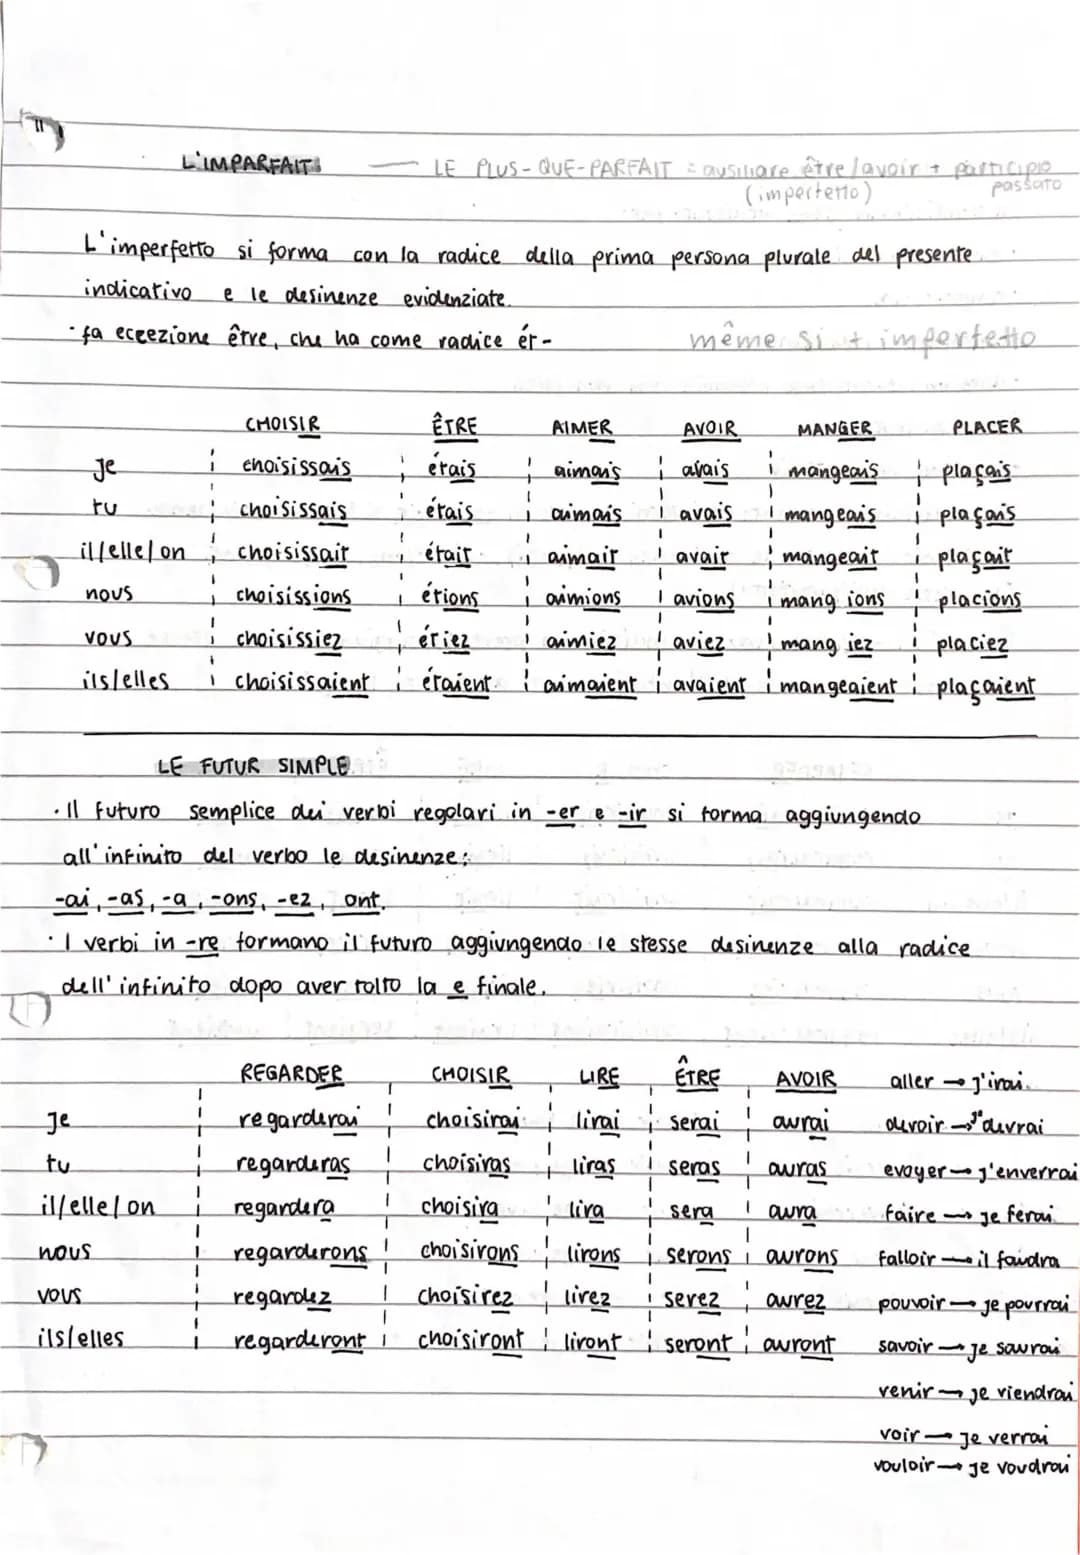 L'IMPARFAIT — LE PLUS-QUE-PARFAIT = ausiliare être/avoir + participio
(imperfetto) passato
L'imperfetto si forma con la radice della prima persona plurale del presente
indicativo e le desinenze evidenziate.
· fa eccezione être, che ha come radice ét- même si + imperfetto
CHOISIR ÊTRE AIMER AVOIR MANGER PLACER
Je choisissais étais aimais avais mangeais plaçais
tu choisissais étais aimais avais mangeais plaçais
il/elle/on choisissait était aimait avait mangeait plaçait
nous choisissions étions aimions avions mang ions placions
vous choisissiez étiez aimiez aviez mang iez placiez
ils/elles choisissaient étaient aimaient avaient mangeaient plaçaient
LE FUTUR SIMPLE
· Il futuro semplice dei verbi regolari in -er e -ir si forma aggiungendo
all'infinito del verbo le desinenze:
-ai, -as, -a, -ons, -ez, ont.
· I verbi in -re formano il futuro aggiungendo le stesse desinenze alla radice
dell'infinito dopo aver tolto la e finale.
REGARDER CHOISIR LIRE ÊTRE AVOIR aller → j'irai.
Je regarderai choisirai lirai serai aurai devoir → je devrai
tu regarderas choisiras liras seras auras evoyer → j'enverrai
il/elle/on regardera choisira lira sera aura faire → je ferai
nous regarderons choisirons lirons serons aurons falloir → il faudra
vous regardez choisirez lirez serez aurez pouvoir → je pourrai
ils/elles regarderont choisiront liront seront auront savoir → je saurai
venir → je viendrai
voir → je verrai
vouloir → je voudrai